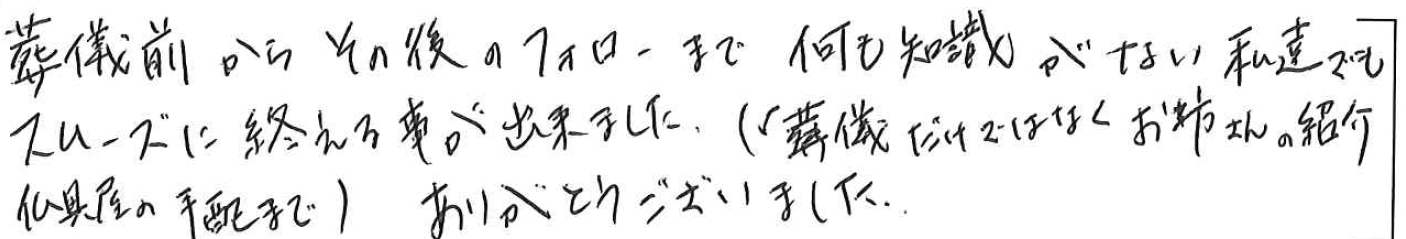 葬儀前から その後のフォローまで 何も知識がない私達でも
スムーズに 終える事が出来ました. (葬儀だけではなく お坊さんの紹介
仏具屋の手配まで) ありがとうございました.